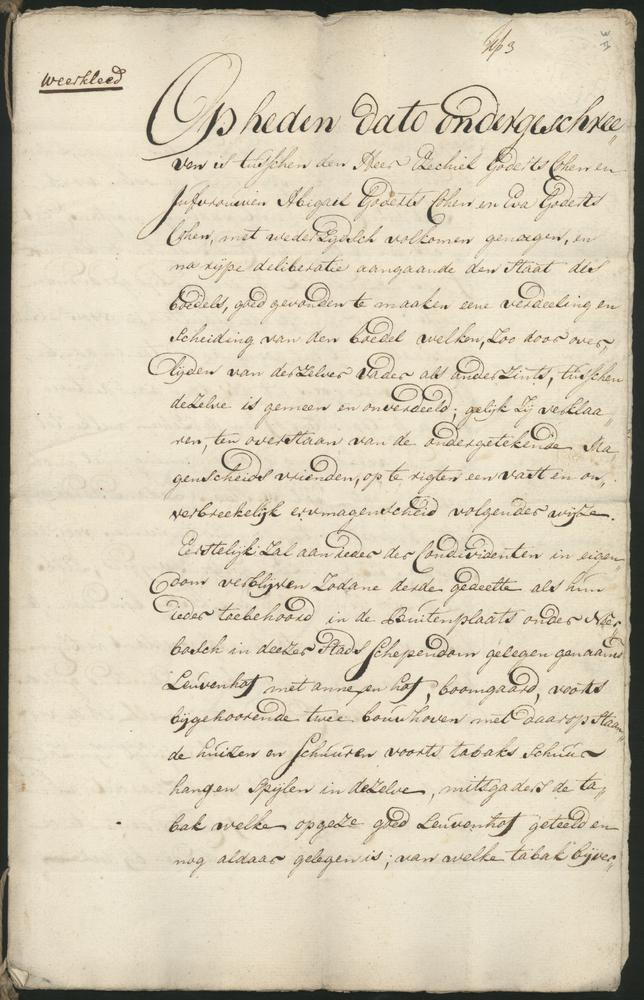 N.º 3
Weerkleed
Op heden dato ondergeschree„
ven is tusschen den Heer Ezechiel Goderts Cohen en
Jufvrouwen Abigael Goderts Cohen en Eva Goderts
Cohen, met wederzijdsch volkomen genoegen, en
na rijpe deliberatie aangaande den Staat des
boedels, goed gevonden te maaken eene verdeeling en
scheiding van den boedel welken, zoo door over„
lijden van derzelver vader als anderzints, tusschen
dezelve is gemeen en onverdeeld; gelijk zij verklaa„
ren, ten overstaan van de ondergetekende Ma„
genscheids vrienden, op te rigten een vast en on„
verbreekelijk ervmagenscheid volgender wijze.
Eerstelijk zal aan ieder der Condividenten in eigen„
dom verblijven zodane derde gedeelte als hun
ieder toebehoord in de Buitenplaats onder Neer„
bosch in deezer Stads Schependom gelegen genaamd
Leuvenhof met annexen hof, boomgaard, voorts
bijgehoorende twee bouwhoven met daar op staan„
de huizen en Schuuren voorts tabaks Schuur
hangen Spijlen in dezelve, mitsgaders de ta„
bak welke op geze goed Leuvenhof geteeld en
nog aldaar gelegen is; van welke tabak bijver„